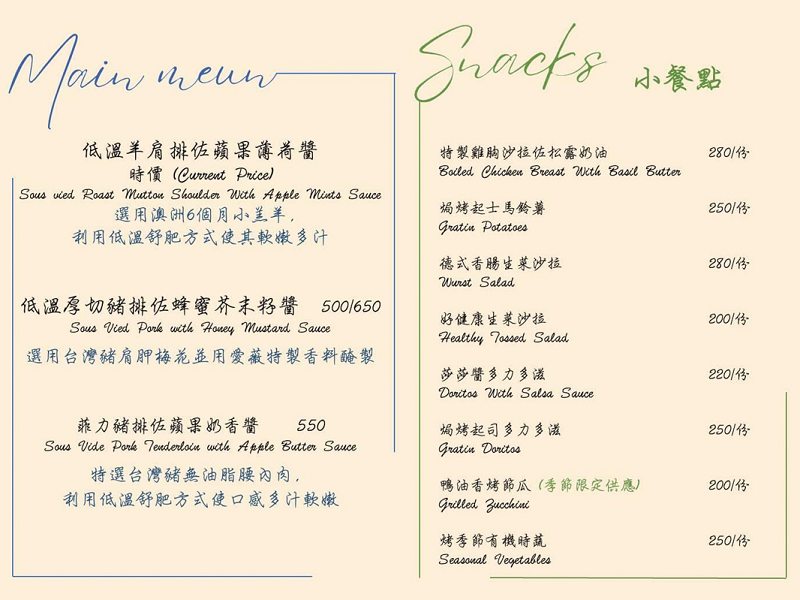 Main meun
低溫羊肩排佐蘋果薄荷醬
時價 (Current Price)
Sous vied Roast Mutton Shoulder With Apple Mints Sauce
選用澳洲6個月小羔羊,
利用低溫舒肥方式使其軟嫩多汁
低溫厚切豬排佐蜂蜜芥末籽醬 500/650
Sous Vied Pork with Honey Mustard Sauce
選用台灣豬肩胛梅花並用愛薇特製香料醃製
菲力豬排佐蘋果奶香醬 550
Sous Vide Pork Tenderloin with Apple Butter Sauce
特選台灣豬無油脂腰內肉,
利用低溫舒肥方式使口感多汁軟嫩
Snacks 小餐點
特製雞胸沙拉佐松露奶油 280/份
Boiled Chicken Breast With Basil Butter
焗烤起士馬鈴薯 250/份
Gratin Potatoes
德式香腸生菜沙拉 280/份
Wurst Salad
好健康生菜沙拉 200/份
Healthy Tossed Salad
莎莎醬多力多滋 220/份
Doritos With Salsa Sauce
焗烤起司多力多滋 250/份
Gratin Doritos
鴨油香烤節瓜 (季節限定供應) 200/份
Grilled Zucchini
烤季節有機時蔬 250/份
Seasonal Vegetables